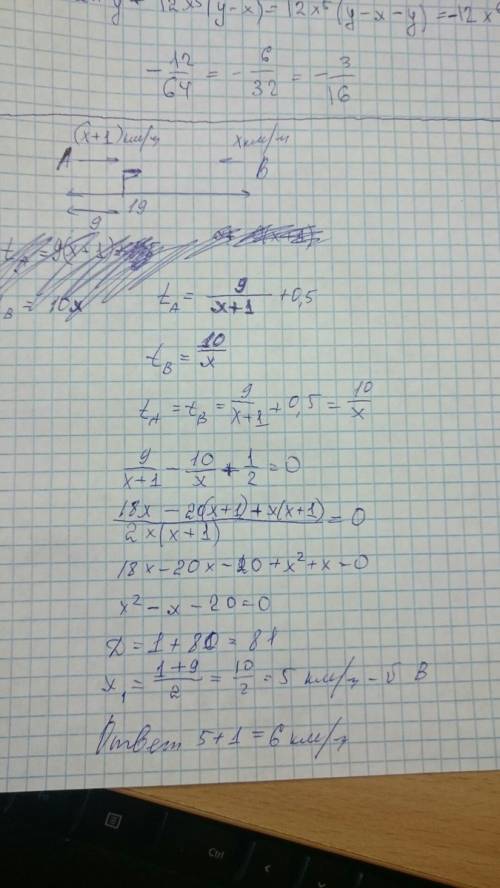 y - 12x⁵(y-x) = 12x⁵(y-x-y) = -12x⁶
-12/64 = -6/32 = -3/16
(x+1) км/ч
x км/ч
A
B
19
9
t_A = 9(x-1)
t_B = 10x
t_A = 9/(x+1) + 0,5
t_B = 10/x
t_A = t_B = 9/(x+1) + 0,5 = 10/x
9/(x+1) - 10/x + 1/2 = 0
(18x - 20(x+1) + x(x+1))/(2x(x+1)) = 0
18x - 20x - 20 + x² + x = 0
x² - x - 20 = 0
D = 1 + 80 = 81
x₁ = (1+9)/2 = 10/2 = 5 км/ч - v B
Ответ 5+1 = 6 км/ч
Ctrl